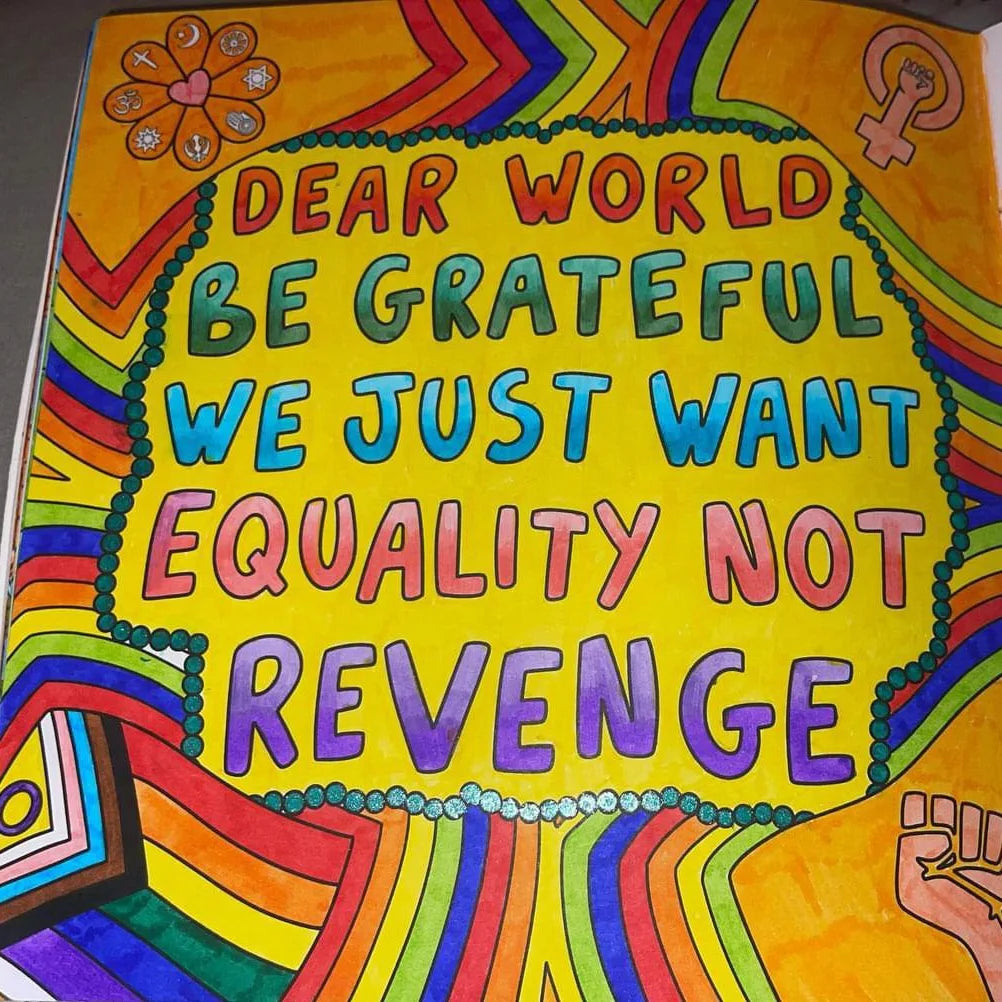 DEAR WORLD
BE GRATEFUL
WE JUST WANT
EQUALITY NOT
REVENGE